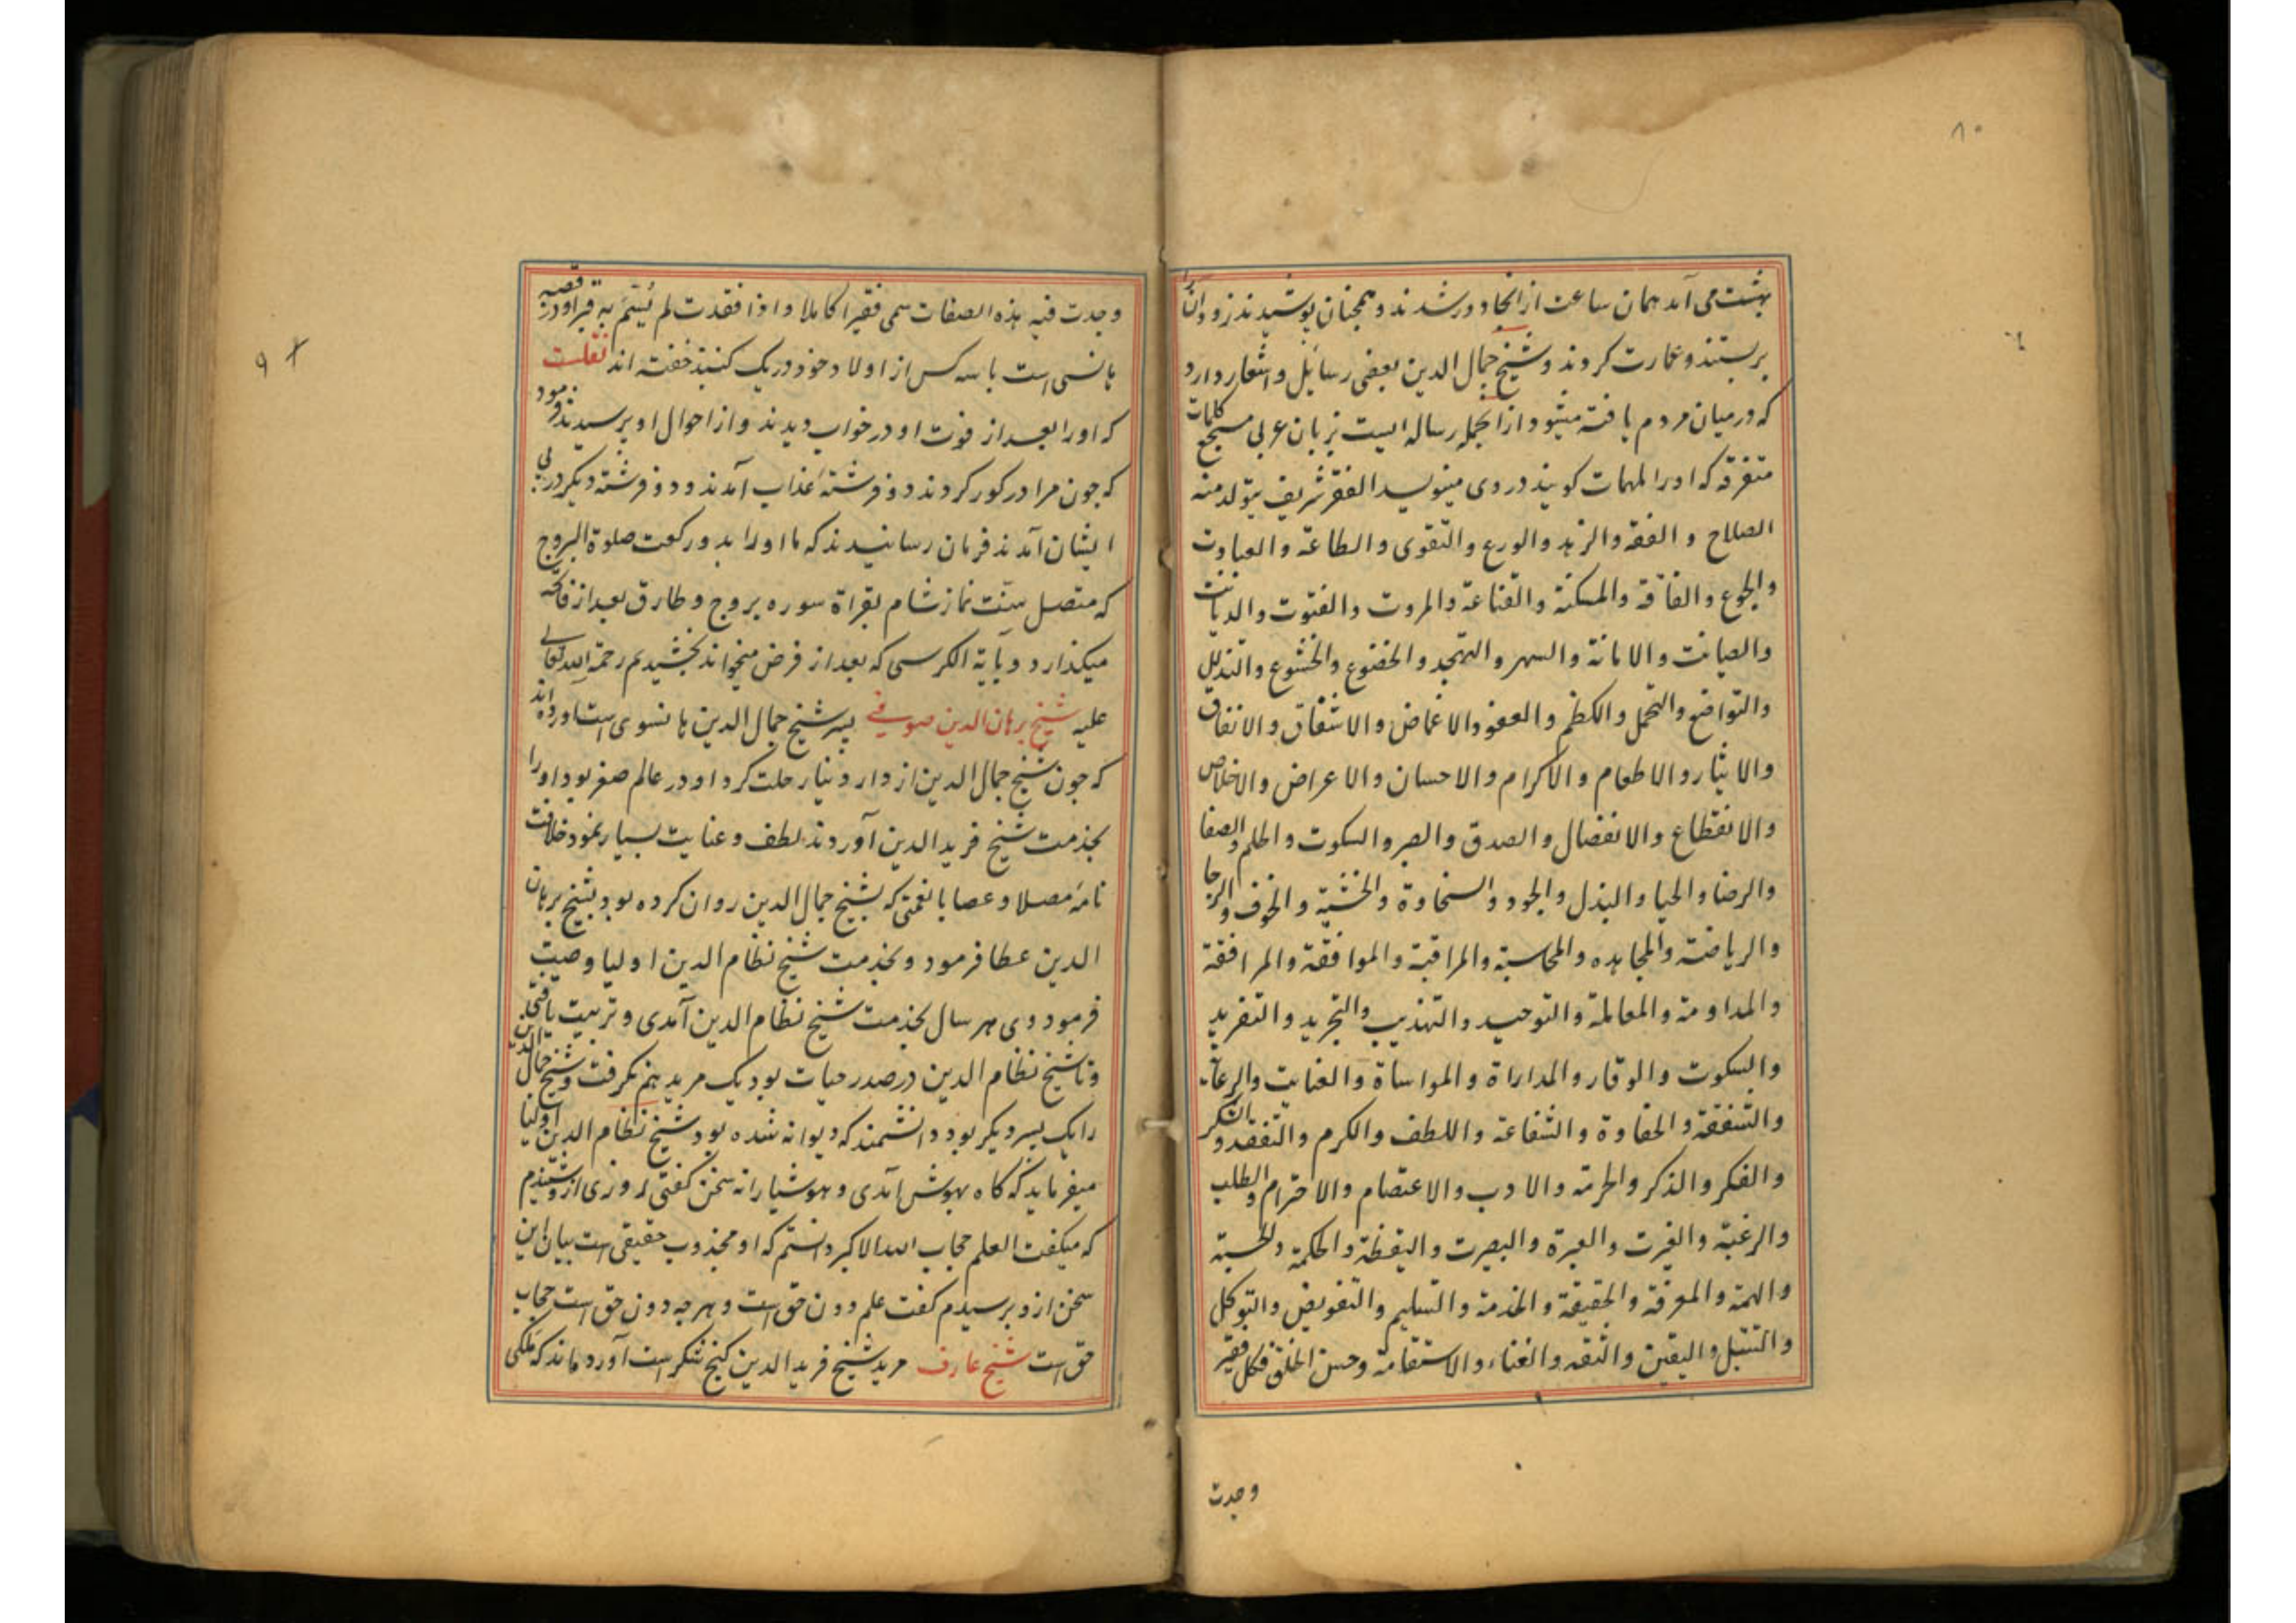 ۸۰
بهشت می آمد همان ساعت از انجا دور شدند و همچنان پوشیدند زود وان را
بربستند و عمارت کردند و شیخ جمال الدین بعضی رسائل و اشعار دارد
که در میان مردم یافته میشود از انجمله رساله ایست بزبان عربی کلمات مسجع
متفرقه که او را ملهمات کویند در وی مینویسد الفقر شریف یتولد منه
الصلاح و العفة والزهد والورع والتقوی والطاعة والعبادت
والجوع والفاقة والمسکنة والقناعة والمروت والفتوت والدیانت
والصیانت والامانة والسهر والتهجد والخضوع والخشوع والتذلل
والتواضع والتحمل والکظم والعفو والاغماض والاشفاق والانفاق
والایثار والاطعام والاکرام والاحسان والاعراض والاخلاص
والانقطاع والانفصال والصدق والصبر والسکوت والحلم والصفا
والرضا والحیا والبذل والجود والسخاوة والخشیة والخوف والرجا
والریاضة والمجاهده والمحاسبة والمراقبة والموافقة والمرافقة
والمداومة والمعاملة والتوحید والتهذیب والتجرید والتفرید
والسکوت والوقار والمداراة والمواساة والعنایت والرعایة
والشفقة والحفاوة والشفاعة واللطف والکرم والتفقد والشکر
والفکر والذکر والحرمة والادب والاعتصام والاحترام والطلب
والرغبة والغیرت والعبرة والبصرت والیقظة والحکمة والحسبة
والهمة والمعرفة والحقیقة والخدمة والتسلیم والتفویض والتوکل
والتبتل والیقین والثقه والغناء والاستقامة وحسن الخلق فکل فقیر
وجدت
وجدت فیه هذه الصفات سمی فقیرا کاملا واذا فقدت لم یسم به قبر او در قصبه
هانسی است با سه کس از اولاد خود در یک کنبد خفته اند نقلست
که اورا بعد از فوت او در خواب دیدند و از احوال او پرسیدند فرمود
که جون مرا در کور کردند دو فرشته عذاب آمدند و دو فرشته دیکر در پی
ایشان آمدند فرمان رسانیدند که ما اورا بدو رکعت صلوة البروج
که متصل سنت نماز شام بقراة سوره بروج و طارق بعد از فاتحه
میکذارد و بآیة الکرسی که بعد از فرض میخواند بخشیدیم رحمة الله تعالی
علیه شیخ برهان الدین صوفی پسر شیخ جمال الدین هانسوی است اورده اند
که جون شیخ جمال الدین از دار دنیا رحلت کرد او در عالم صغر بود اورا
بخدمت شیخ فرید الدین آوردند لطف و عنایت بسیار نمود خلافت
نامه مصلا و عصا با نعمتی که بشیخ جمال الدین روان کرده بود بشیخ برهان
الدین عطا فرمود و بخدمت شیخ نظام الدین اولیا وصیت
فرمود وی هر سال بخدمت شیخ نظام الدین آمدی و تربیت یافتی
و تا شیخ نظام الدین در صدر حیات بود یک مرید هم نکرفت و شیخ جمال الدین
را یک پسر دیکر بود دانشمند که دیوانه شده بود شیخ نظام الدین اولیا
میفرماید که کاه بهوش آمدی و هوشیارانه سخن کفتی روزی از و شنیدم
که میکفت العلم حجاب الله الاکبر دانستم که او مجذوب حقیقی است بیان این
سخن از و پرسیدم کفت علم دون حق است و هر جه دون حق است حجاب
حق است شیخ عارف مرید شیخ فرید الدین کنج شکر است آورده اند که ملکی